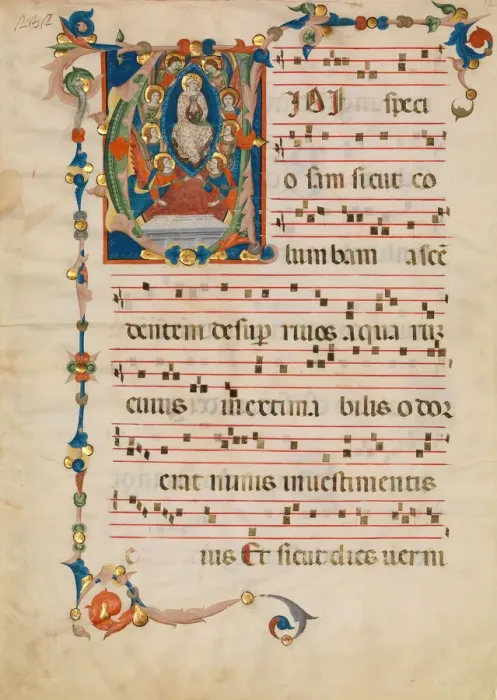 IDI speci
osam sicut co
lumbam ascē
dentem desup rivos aquaruz
cuius inextimabilis odor
erat nimis in vestimentis
eius Et sicut dies verni